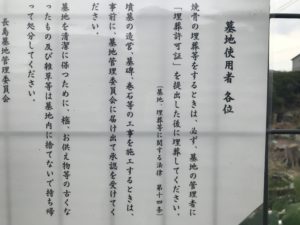 墓地使用者 各位
焼骨の埋葬等をするときは、必ず、墓地の管理者に
「埋葬許可証」を提出した後に埋葬してください。
(墓地、埋葬等に関する法律 第十四条)
墳墓の造営、墓碑、巻石等の工事を施工するときは、
事前に、墓地管理委員会に届け出て承認を受けてく
ださい。
墓地を清潔に保つために、樒、お供え物等の古くな
ったもの及び雑草等は墓地内に捨てないで持ち帰
って処分してください。
長島墓地管理委員会